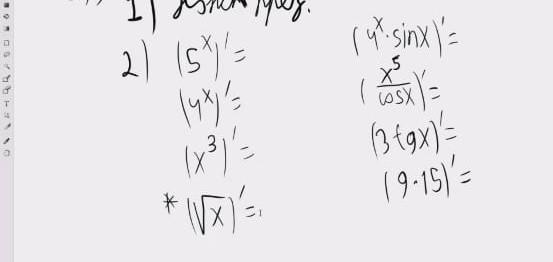 1)
2) (5^x)' =
(y^x)' =
(x^3)' =
* (√x)' =
(y^x · sinx)' =
(x^5 / cosx)' =
(3tgx)' =
(9·15)' =